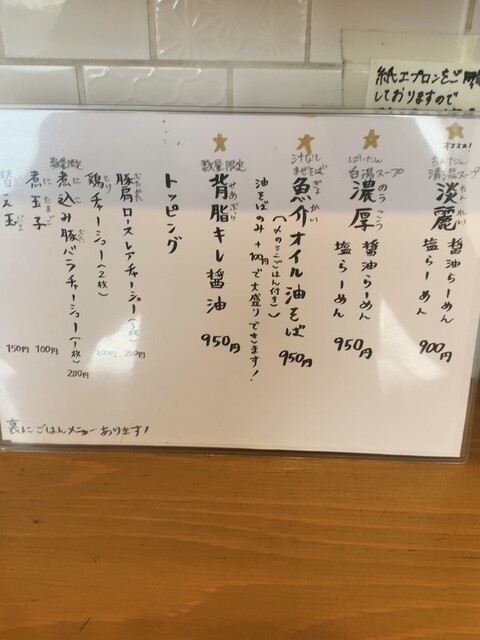 紙エプロンをご用
しておりますので
オススメ!
清湯スープ
淡麗
たんれい
醤油らーめん
塩らーめん
900円
ぱいたん
白湯スープ
濃厚
のうこう
醤油らーめん
塩らーめん
950円
汁なし
まぜそば
魚介オイル油そば
ぎょかい
(〆のミニごはん付き)
950円
油そばのみ+100円で大盛りできます!
数量限定
背脂キレ醤油
せあぶら
950円
トッピング
豚肩ロースレアチャーシュー(3枚)
ぶたかた
200円
鶏チャーシュー(2枚)
とり
200円
数量限定
煮込み豚バラチャーシュー(1枚)
200円
煮玉子
にたまご
100円
替え玉
150円
裏にごはんメニューあります!